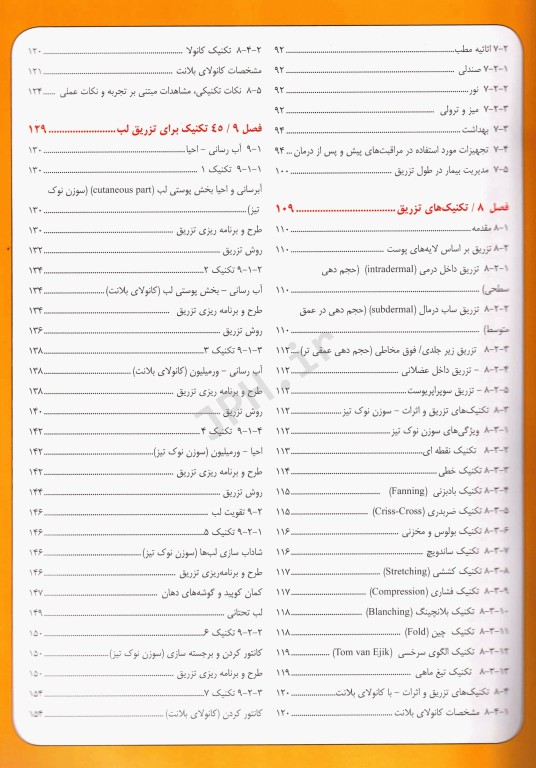 ۷-۲ اثاثیه مطب ۹۲
۷-۲-۱ صندلی ۹۲
۷-۲-۲ نور ۹۲
۷-۲-۳ میز و ترولی ۹۲
۷-۳ بهداشت ۹۴
۷-۴ تجهیزات مورد استفاده در مراقبت‌های پیش و پس از درمان ۹۴
۷-۵ مدیریت بیمار در طول تزریق ۱۰۰
فصل ۸ / تکنیک‌های تزریق ۱۰۹
۸-۱ مقدمه ۱۱۰
۸-۲ تزریق بر اساس لایه‌های پوست ۱۱۰
۸-۲-۱ تزریق داخل درمی (intradermal) (حجم دهی
سطحی) ۱۱۰
۸-۲-۲ تزریق ساب درمال (subdermal) (حجم دهی در عمق
متوسط) ۱۱۰
۸-۲-۳ تزریق زیر جلدی/ فوق مخاطی (حجم دهی عمقی تر) ۱۱۲
۸-۲-۴ - تزریق داخل عضلانی ۱۱۲
۸-۲-۵ - تزریق سوپراپریوست ۱۱۲
۸-۳ تکنیک‌های تزریق و اثرات - سوزن نوک تیز ۱۱۲
۸-۳-۱ ویژگی‌های سوزن نوک تیز ۱۱۲
۸-۳-۲ تکنیک نقطه ای ۱۱۳
۸-۳-۳ تکنیک خطی ۱۱۴
۸-۳-۴ تکنیک بادبزنی (Fanning) ۱۱۵
۸-۳-۵ تکنیک ضربدری (Criss-Cross) ۱۱۵
۸-۳-۶ تکنیک بولوس و مخزنی ۱۱۶
۸-۳-۷ تکنیک ساندویچ ۱۱۶
۸-۳-۸ تکنیک کششی (Stretching) ۱۱۷
۸-۳-۹ تکنیک فشاری (Compression) ۱۱۷
۸-۳-۱۰ تکنیک بلانچینگ (Blanching) ۱۱۸
۸-۳-۱۱ تکنیک چین (Fold) ۱۱۸
۸-۳-۱۲ تکنیک الگوی سرخسی (Tom van Eijk) ۱۱۹
۸-۳-۱۳ تکنیک تیغ ماهی ۱۱۹
۸-۴ تکنیک‌های تزریق و اثرات - با کانولای بلانت ۱۲۰
۸-۴-۱ مشخصات کانولای بلانت ۱۲۰
۸-۴-۲ تکنیک کانولا ۱۲۰
مشخصات کانولای بلانت ۱۲۱
۸-۵ نکات تکنیکی، مشاهدات مبتنی بر تجربه و نکات عملی ۱۲۴
فصل ۹ / ٤٥ تکنیک برای تزریق لب ۱۲۹
۹-۱ آب رسانی - احیا ۱۳۰
۹-۱-۱ تکنیک ۱ ۱۳۰
آبرسانی و احیا بخش پوستی لب (cutaneous part) (سوزن نوک
تیز) ۱۳۰
طرح و برنامه ریزی تزریق ۱۳۰
روش تزریق ۱۳۲
۹-۱-۲ تکنیک ۲ ۱۳۴
آب رسانی - بخش پوستی لب (کانولای بلانت) ۱۳۴
طرح و برنامه ریزی تزریق ۱۳۴
روش تزریق ۱۳۶
۹-۱-۳ تکنیک ۳ ۱۳۸
آب رسانی - ورمیلیون (کانولای بلانت) ۱۳۸
طرح و برنامه ریزی تزریق ۱۳۸
روش تزریق ۱۴۰
۹-۱-۴ تکنیک ۴ ۱۴۲
احیا - ورمیلیون (سوزن نوک تیز) ۱۴۲
طرح و برنامه ریزی تزریق ۱۴۲
روش تزریق ۱۴۴
۹-۲ تقویت لب ۱۴۶
۹-۲-۱ تکنیک ۵ ۱۴۶
شاداب سازی لب‌ها (سوزن نوک تیز) ۱۴۶
طرح و برنامه‌ریزی تزریق ۱۴۶
کمان کوپید و گوشه‌های دهان ۱۴۷
لب تحتانی ۱۴۹
۹-۲-۲ تکنیک ۶ ۱۵۰
کانتور کردن و برجسته سازی (سوزن نوک تیز) ۱۵۰
طرح و برنامه ریزی تزریق ۱۵۰
۹-۲-۳ تکنیک ۷ ۱۵۴
کانتور کردن (کانولای بلانت) ۱۵۴
JPH.ir